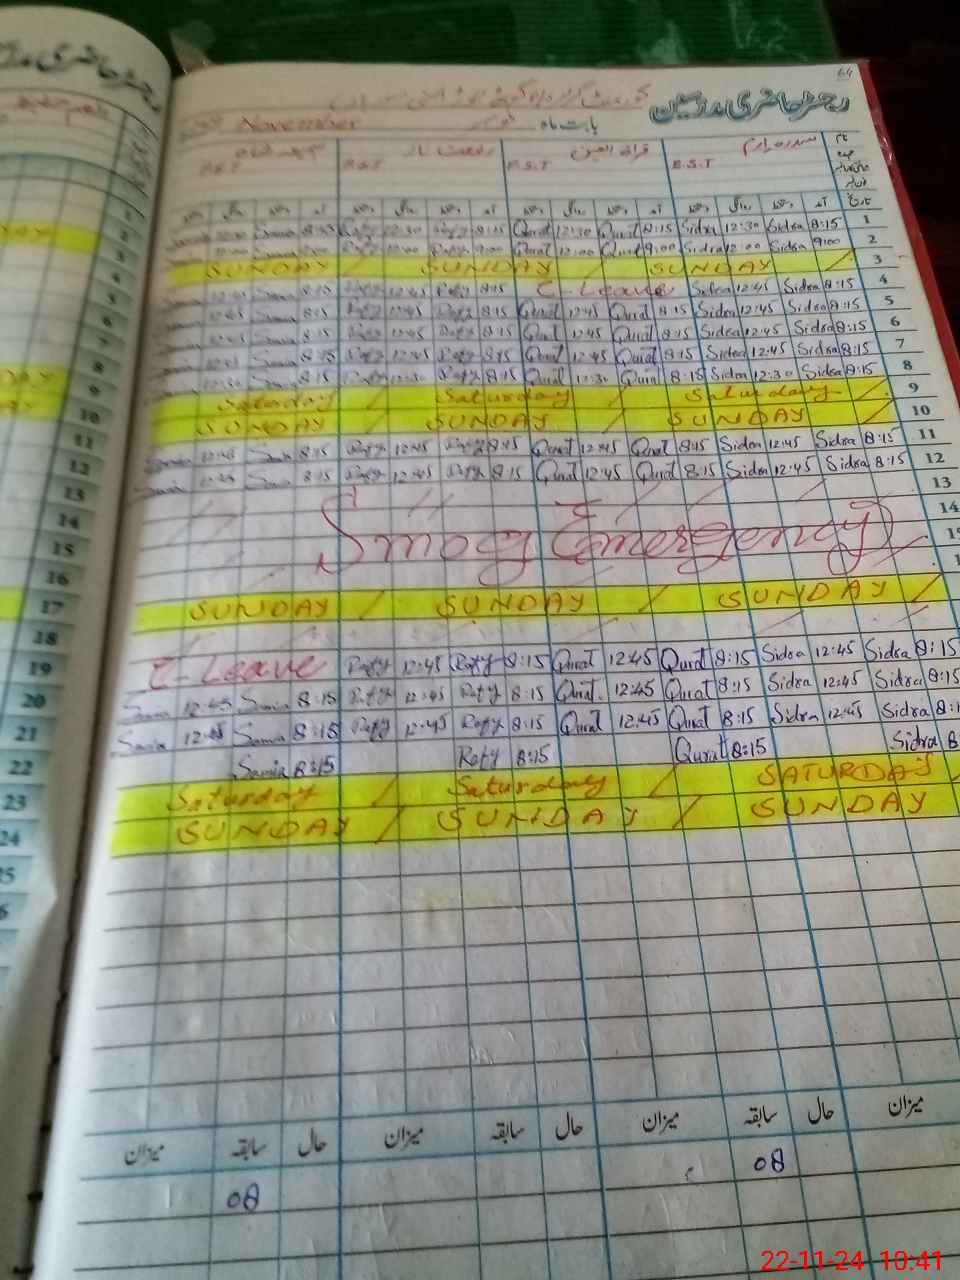 64
رجسٹر حاضری مدرسین
November
بابت ماہ
سدرہ ارم قراۃ العین
E.S.T E.S.T E.S.T E.S.T
1 Sidra 8:15 Sidra 12:30 Qurat 8:15 Qurat 12:30 Rofy 8:15 Rofy 12:30
2 Sidra 9:00 Sidra 12:00 Qurat 9:00 Qurat 12:00 Rofy 9:00
3 SUNDAY / SUNDAY / SUNDAY /
4 Sidra 8:15 Sidra 12:45 C-Leave Rofy 8:15 Rofy 12:45 Samia 8:15 12:45
5 Sidra 8:15 Sidra 12:45 Qurat 8:15 Qurat 12:45 Rofy 8:15 Rofy 12:45 Samia 8:15 12:45
6 Sidra 8:15 Sidra 12:45 Qurat 8:15 Qurat 12:45 Rofy 8:15 Rofy 12:45 Samia 8:15 12:45
7 Sidra 8:15 Sidra 12:45 Qurat 8:15 Qurat 12:45 Rofy 8:15 Rofy 12:45 Samia 8:15 12:45
8 Sidra 8:15 Sidra 12:30 Qurat 8:15 Qurat 12:30 Rofy 8:15 Rofy 12:30 Samia 8:15 12:30
9 Saturday / Saturday / Saturday /
10 SUNDAY / SUNDAY / SUNDAY /
11 Sidra 8:15 Sidra 12:45 Qurat 8:15 Qurat 12:45 Rofy 8:45 Rofy 12:45 Samia 8:15 Samia 12:45
12 Sidra 8:15 Sidra 12:45 Qurat 8:15 Qurat 12:45 Rofy 8:15 Rofy 12:45 Samia 8:15 Samia 12:45
13
14
Smog Emergency
15
SUNDAY / SUNDAY / SUNDAY /
Sidra 8:15 Sidra 12:45 Qurat 8:15 Qurat 12:45 Rofy 8:15 Rofy 12:45 C-Leave
Sidra 8:15 Sidra 12:45 Qurat 8:15 Qurat 12:45 Rofy 8:15 Rofy 12:45 Samia 8:15 Samia 12:45
Sidra 8:1 Sidra 12:45 Qurat 8:15 Qurat 12:45 Rofy 8:15 Rofy 12:45 Samia 8:15 Samia 12:45
Sidra 8 Qurat 8:15 Rofy 8:15 Samia 8:15
SATURDAY / Saturday / Saturday
SUNDAY / SUNDAY / SUNDAY
میزان حال سابقہ میزان حال سابقہ میزان حال سابقہ میزان
08
08
1
2
3
4
5
6
7
8
9
10
11
12
13
14
15
16
17
18
19
20
21
22
23
24
22-11-24 10:41